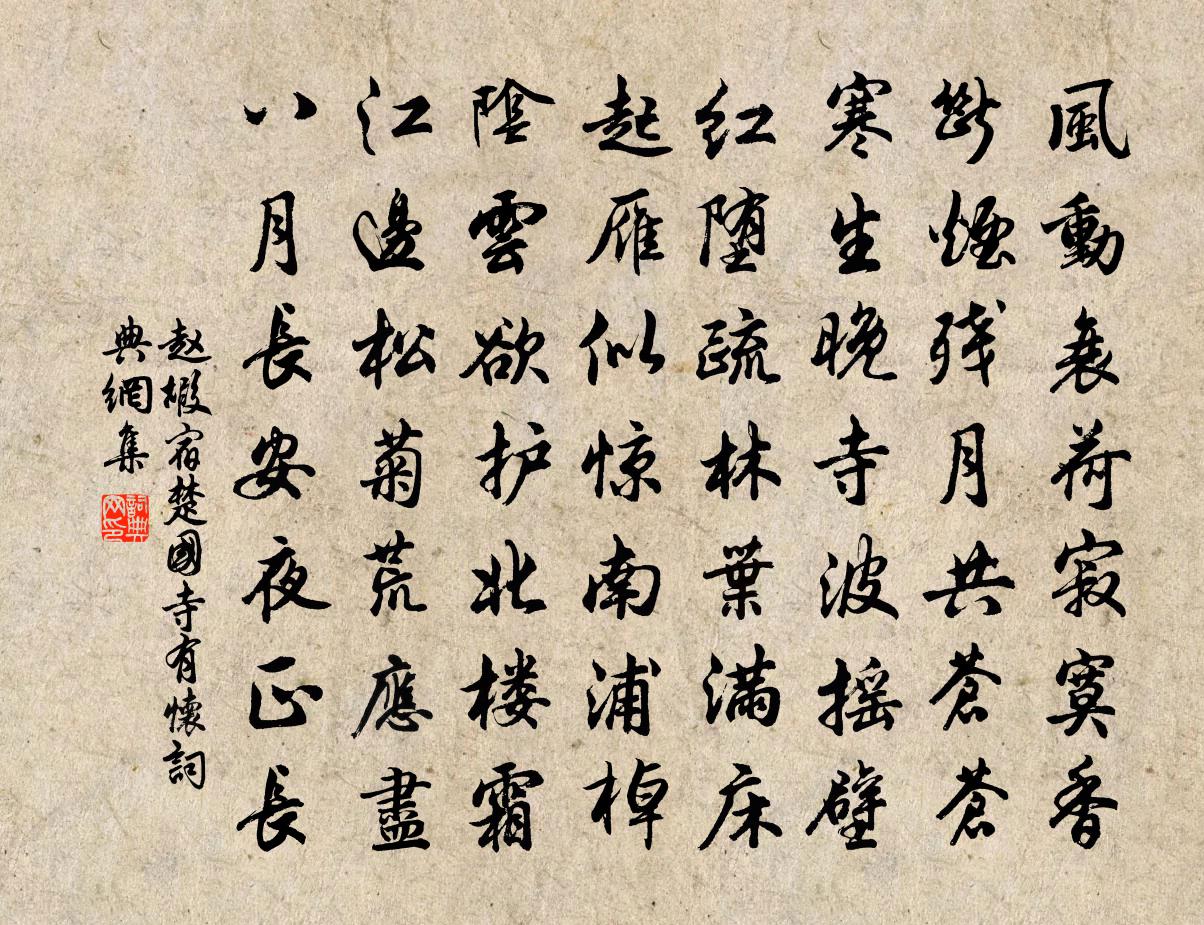 風動衰荷寂寞香
斷煙残月共蒼蒼
寒生晚寺波摇壁
紅堕疏林葉满床
起雁似惊南浦棹
陰雲欲护北楼霜
江邊松菊荒應盡
八月長安夜正長
赵嘏宿楚國寺有懷詞
典網集
詞典网印